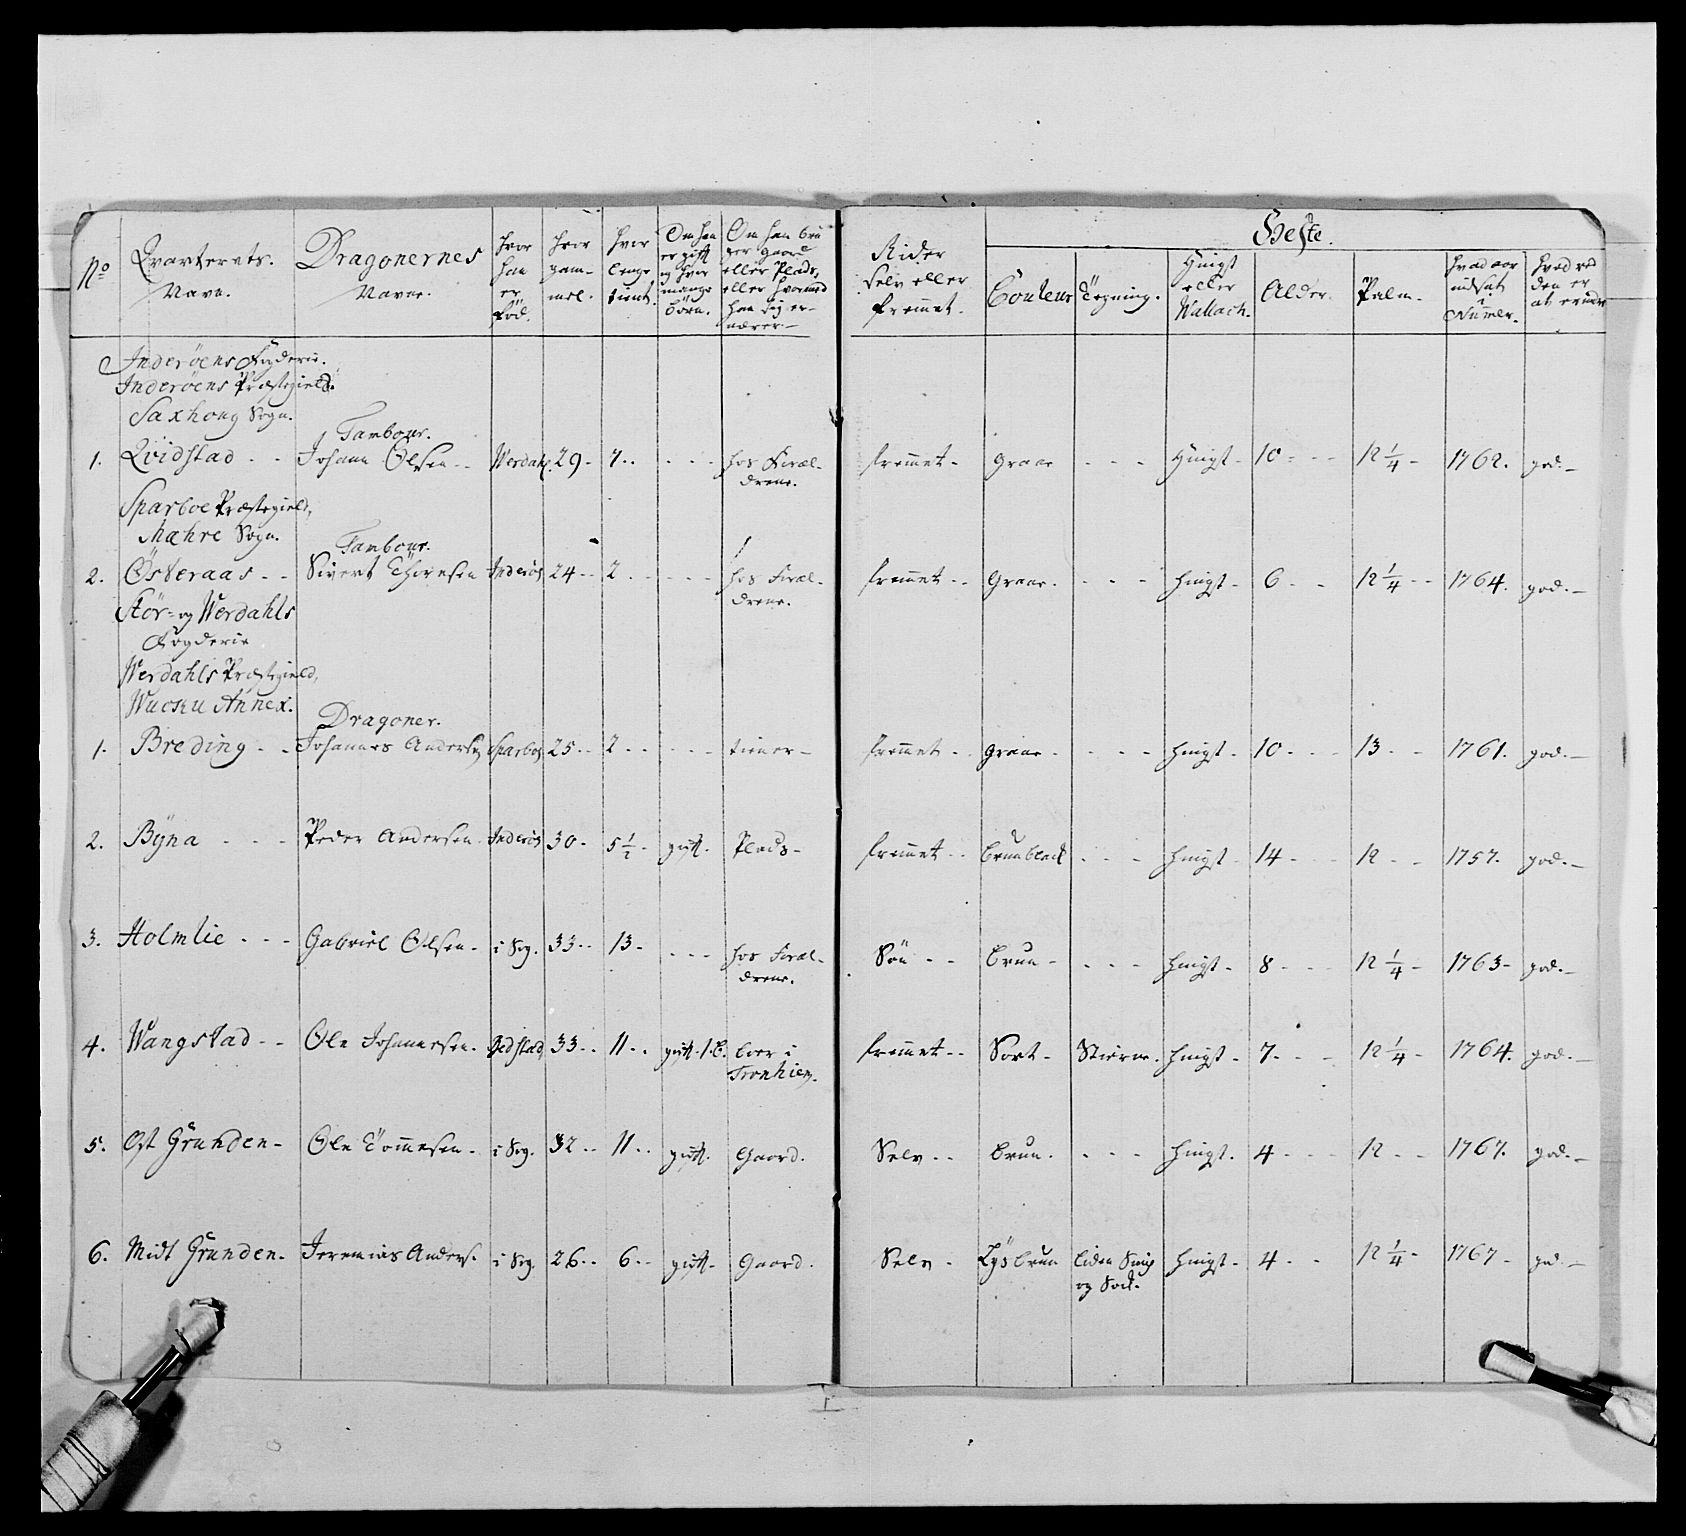 Heste.
No
Qvarterets. Navn.
Dragonernes Navne.
hvor han er fød.
hvor gam- mel.
hvor lenge tient.
Om han er gift og hvor mange börn.
Om han bru ger gaard eller Plads, eller hvormed han sig er- nærer.
Rider selv eller fremmet.
Couleur
Tegning.
Hingst eller Wallach.
Alder.
Palm.
hvad aar indsat i Numer.
hvad ved den er at erindre
Inderöens Fogderie.
Inderöens Præstegield.
Saxhoug Sogn.
Tambour.
1. Qvidstad - - Johan Olsen - - Werdahl. 29 - 7 - - - - - hos Foræl- drene. fremmet - graae - - - Hingst - 10 - - - 12 1/4 - 1762. god. -
Sparboe Præstegield,
Mæhre Sogn.
Tambour.
2. Österaas - - Sivert Thoresen Inderöe 24 - - 2 - - - - - hos Foræl- drene. fremmet - - Graae - - - - hingst - 6 - - 12 1/4 - - 1764. god. -
Stör- og Werdahls
Fogderie
Werdahls Præstegield,
Wuosku Annex.
Dragoner.
1. Breding - - Johannes Anders. Sparboe 25 - - 2 - - - - - tiener - fremmet - - graae - - - - hingst - 10 - - - 13 - - 1761. god. -
2. Bÿna - - - Peder Andersen Inderöe 30 - 5 1/2 - gift. Plads - fremmet - - brunblack - - - hingst - 14 - - - 12 - - 1757. god. -
3. Holmlie - - - Gabriel Olsen - i Sog. 33 - - 13 - - - - hos Foræl- drene. Sön - - brun - - - - hingst - 8 - - - 12 1/4 - 1763 - god. -
4. Wangstad - - Ole Johannesen - 33 - - 11 - - gift. 1. B. boer i Tronhiem. fremmet - - Sort - Stierne. hingst - 7 - - - 12 1/4 - 1764. god. -
5. Öst Grunden - Ole Tommesen - i Sog. 32 - - 11 - - gift. Gaard. Selv - - brun. - - - hingst. 4 - - - 12 - - 1767. god. -
6. Midt Grunden - Jeremias Anders. i Sog. 26 - - 6 - - gift - Gaard. Selv - Lysbrun liden Snip og Sock. hingst - 4 - - 12 1/4 - 1767 - god. -